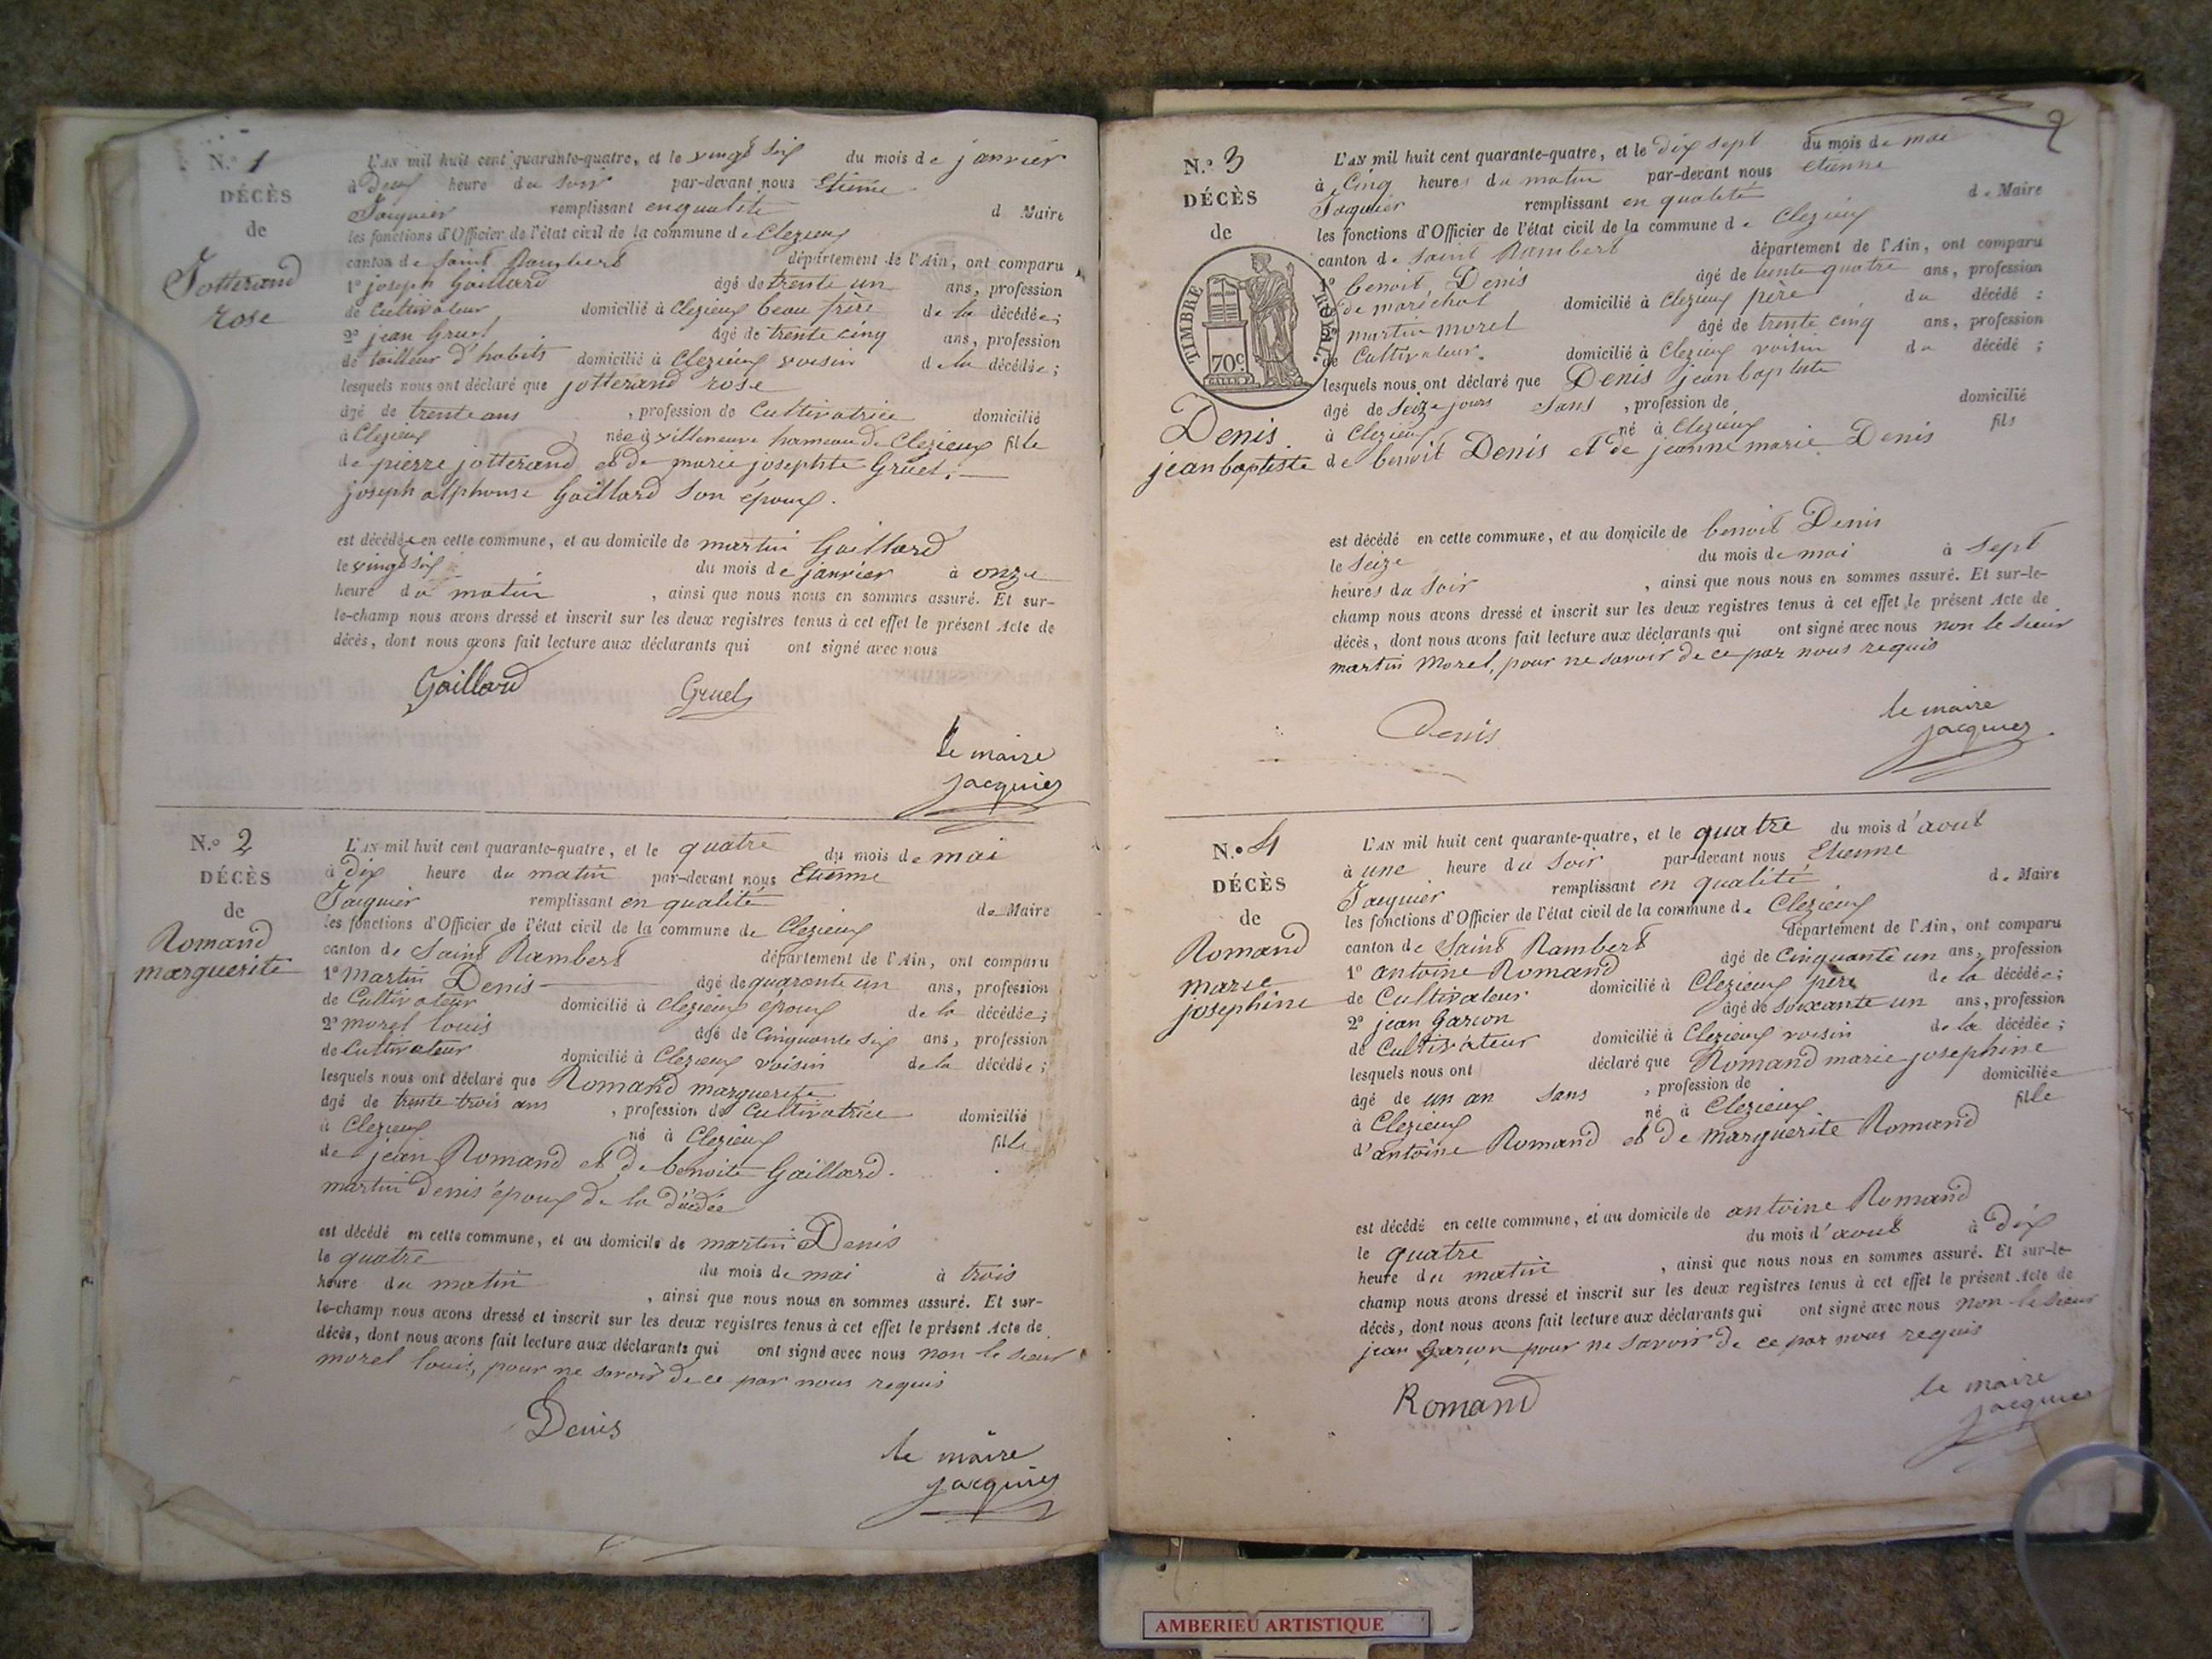 N.º 1
DÉCÈS
de
Jotterand
rose
L'AN mil huit cent quarante-quatre, et le vingt six du mois de janvier
à Deux heure du soir par-devant nous Etienne
Jacquier remplissant en qualité d Maire
les fonctions d'Officier de l'état civil de la commune de Clezieux
canton de Saint Rambert département de l'Ain, ont comparu
1º joseph Gaillard âgé de trente un ans, profession
de Cultivateur domicilié à Clezieux beau frère de la décédée;
2º jean Gruel âgé de trente cinq ans, profession
de tailleur d'habits domicilié à Clezieux voisin de la décédée;
lesquels nous ont déclaré que jotterand rose
âgé de trente ans , profession de Cultivatrice domicilié
à Clezieux née à villeneuve hameau de Clezieux fille
de pierre jotterand et de marie josephte Gruel.
joseph alphonse Gaillard son époux.
est décédée en cette commune, et au domicile de martin Gaillard
le vingt six du mois de janvier à onze
heure du matin , ainsi que nous nous en sommes assuré. Et sur-
le-champ nous avons dressé et inscrit sur les deux registres tenus à cet effet le présent Acte de
décès, dont nous avons fait lecture aux déclarants qui ont signé avec nous
Gaillard Gruel
le maire
jacquier
N.º 2
DÉCÈS
de
Romand
marguerite
L'AN mil huit cent quarante-quatre, et le quatre du mois de mai
à Dix heure du matin par-devant nous Etienne
Jacquier remplissant en qualité de Maire
les fonctions d'Officier de l'état civil de la commune de Clezieux
canton de Saint Rambert département de l'Ain, ont comparu
1º Martin Denis âgé de quaronte un ans, profession
de Cultivateur domicilié à Clezieux époux de la décédée;
2º morel louis âgé de Cinquante six ans, profession
de Cultivateur domicilié à Clezieux voisin de la décédée;
lesquels nous ont déclaré que Romand marguerite
âgé de trente trois ans , profession de Cultivatrice domicilié
à Clezieux né à Clezieux fille
de jean Romand et de benoite Gaillard.
martin Denis époux de la
est décédé en cette commune, et au domicile de martin Denis
le quatre du mois de mai à trois
heure du matin , ainsi que nous nous en sommes assuré. Et sur-
le-champ nous avons dressé et inscrit sur les deux registres tenus à cet effet le présent Acte de
décès, dont nous avons fait lecture aux déclarants qui ont signé avec nous non le sieur
morel louis, pour ne savoir de ce par nous requis
Denis
le maire
jacquier
2
N.º 3
DÉCÈS
de
TIMBRE ROYAL.
70c.
Denis
jean baptiste
L'AN mil huit cent quarante-quatre, et le dix sept du mois de mai
à Cinq heures du matin par-devant nous etienne
Jacquier remplissant en qualité de Maire
les fonctions d'Officier de l'état civil de la commune de Clezieux
canton de Saint Rambert département de l'Ain, ont comparu
benoit Denis âgé de trente quatre ans, profession
de maréchal domicilié à Clezieux père du décédé :
martin morel âgé de trente cinq ans, profession
de Cultivateur. domicilié à Clezieux voisin du décédé ;
lesquels nous ont déclaré que Denis jean baptiste
âgé de Seize jours Sans , profession de domicilié
à Clezieux né à Clezieux fils
de benoit Denis et de jeanne marie Denis
est décédé en cette commune, et au domicile de benoit Denis
le Seize du mois de mai à sept
heures du soir , ainsi que nous nous en sommes assuré. Et sur-le-
champ nous avons dressé et inscrit sur les deux registres tenus à cet effet le présent Acte de
décès, dont nous avons fait lecture aux déclarants qui ont signé avec nous non le sieur
martin Morel, pour ne savoir de ce par nous requis
Denis
le maire
jacquier
N.º 4
DÉCÈS
de
Romand
marie
josephine
L'AN mil huit cent quarante-quatre, et le quatre du mois d'aout
à une heure du soir par-devant nous Etienne
Jacquier remplissant en qualité de Maire
les fonctions d'Officier de l'état civil de la commune de Clezieux
canton de Saint Rambert département de l'Ain, ont comparu
1º antoine Romand âgé de Cinquante un ans, profession
de Cultivateur domicilié à Clezieux père de la décédée;
2º jean Garcon âgé de soixante un ans, profession
de Cultivateur domicilié à Clezieux voisin de la décédée;
lesquels nous ont déclaré que Romand marie josephine
âgé de un an sans , profession de domiciliée
à Clezieux né à Clezieux fille
d'antoine Romand et de marguerite Romand
est décédé en cette commune, et au domicile de antoine Romand
le quatre du mois d'aout à dix
heure du matin , ainsi que nous nous en sommes assuré. Et sur-le-
champ nous avons dressé et inscrit sur les deux registres tenus à cet effet le présent Acte de
décès, dont nous avons fait lecture aux déclarants qui ont signé avec nous non le sieur
jean Garçon pour ne savoir de ce par nous requis
Romand
le maire
jacquier
AMBERIEU ARTISTIQUE